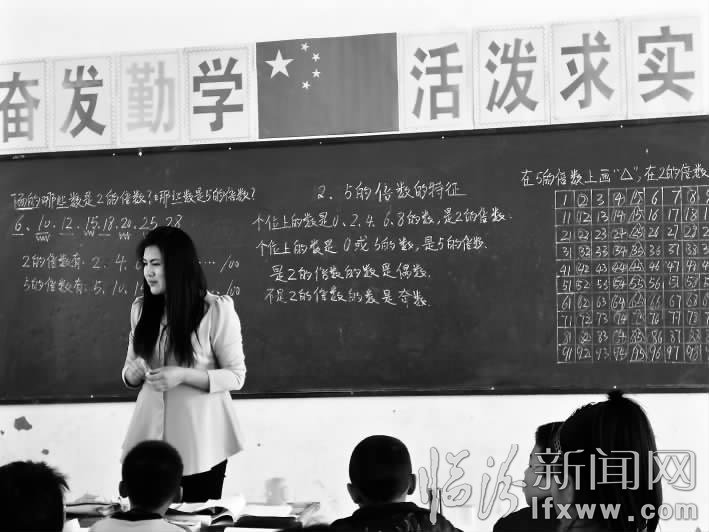 奋发勤学 活泼求实
下面的哪些数是2的倍数?哪些数是5的倍数?
6、10、12、15、18、20、25、28
2的倍数有:2、4、6 …… 100
5的倍数有:5、10、1 …… 100
2、5的倍数的特征
个位上的数是0、2、4、6、8的数,是2的倍数.
个位上的数是0或5的数,是5的倍数.
是2的倍数的数是偶数.
不是2的倍数的数是奇数.
在5的倍数上画"△",在2的倍数
1 2 3 4 5 6 7 8
11 12 13 14 15 16 17 18
21 22 23 24 25 26 27 28
31 32 33 34 35 36 37 38
41 42 43 44 45 46 47 48
51 52 53 54 55 56 57 58
61 62 63 64 65 66 67 68
71 72 73 74 75 76 77 78
81 82 83 84 85 86 87 88
91 92 93 94 95 96 97 98
临汾新闻网
lfxww.com